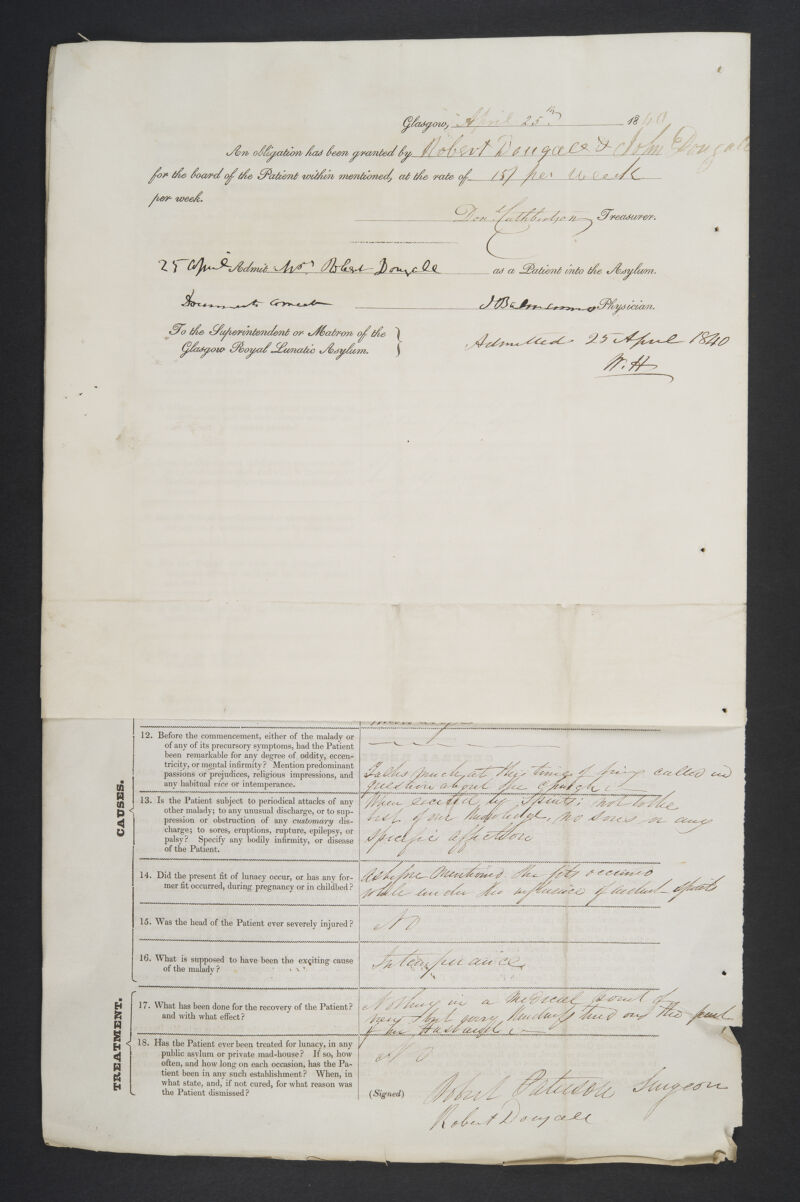 Glasgow, April 25th 1840
An obligation has been granted by Robert Dougall & John Dougall
for the board of the Patient within mentioned, at the rate of 15/ per week
per week.
Don. Cuthbertson Treasurer.
25 April Admit Mrs Robert Dougall as a Patient into the Asylum.
Documents correct Physician.
To the Superintendent or Matron of the
Glasgow Royal Lunatic Asylum.
Admitted 25 April 1840
W. H
CAUSES.
12. Before the commencement, either of the malady or
of any of its precursory symptoms, had the Patient
been remarkable for any degree of oddity, eccen-
tricity, or mental infirmity? Mention predominant
passions or prejudices, religious impressions, and
any habitual vice or intemperance.
Talks much at this time of being called in
question about the church
13. Is the Patient subject to periodical attacks of any
other malady; to any unusual discharge, or to sup-
pression or obstruction of any customary dis-
charge; to sores, eruptions, rupture, epilepsy, or
palsy? Specify any bodily infirmity, or disease
of the Patient.
When excited by Spirits: not to the
best of our knowledge, no sores or any
specific affection
14. Did the present fit of lunacy occur, or has any for-
mer fit occurred, during pregnancy or in childbed?
As before mentioned the fits occured
while under the influence of ardent spirits
15. Was the head of the Patient ever severely injured?
No
16. What is supposed to have been the exciting cause
of the malady?
Intemperance
TREATMENT.
17. What has been done for the recovery of the Patient?
and with what effect?
Nothing in a medical point of
view but every kindness tried on the part
of her Husband
18. Has the Patient ever been treated for lunacy, in any
public asylum or private mad-house? If so, how
often, and how long on each occasion, has the Pa-
tient been in any such establishment? When, in
what state, and, if not cured, for what reason was
the Patient dismissed?
No
(Signed) Robert Paterson Surgeon
Robert Dougall